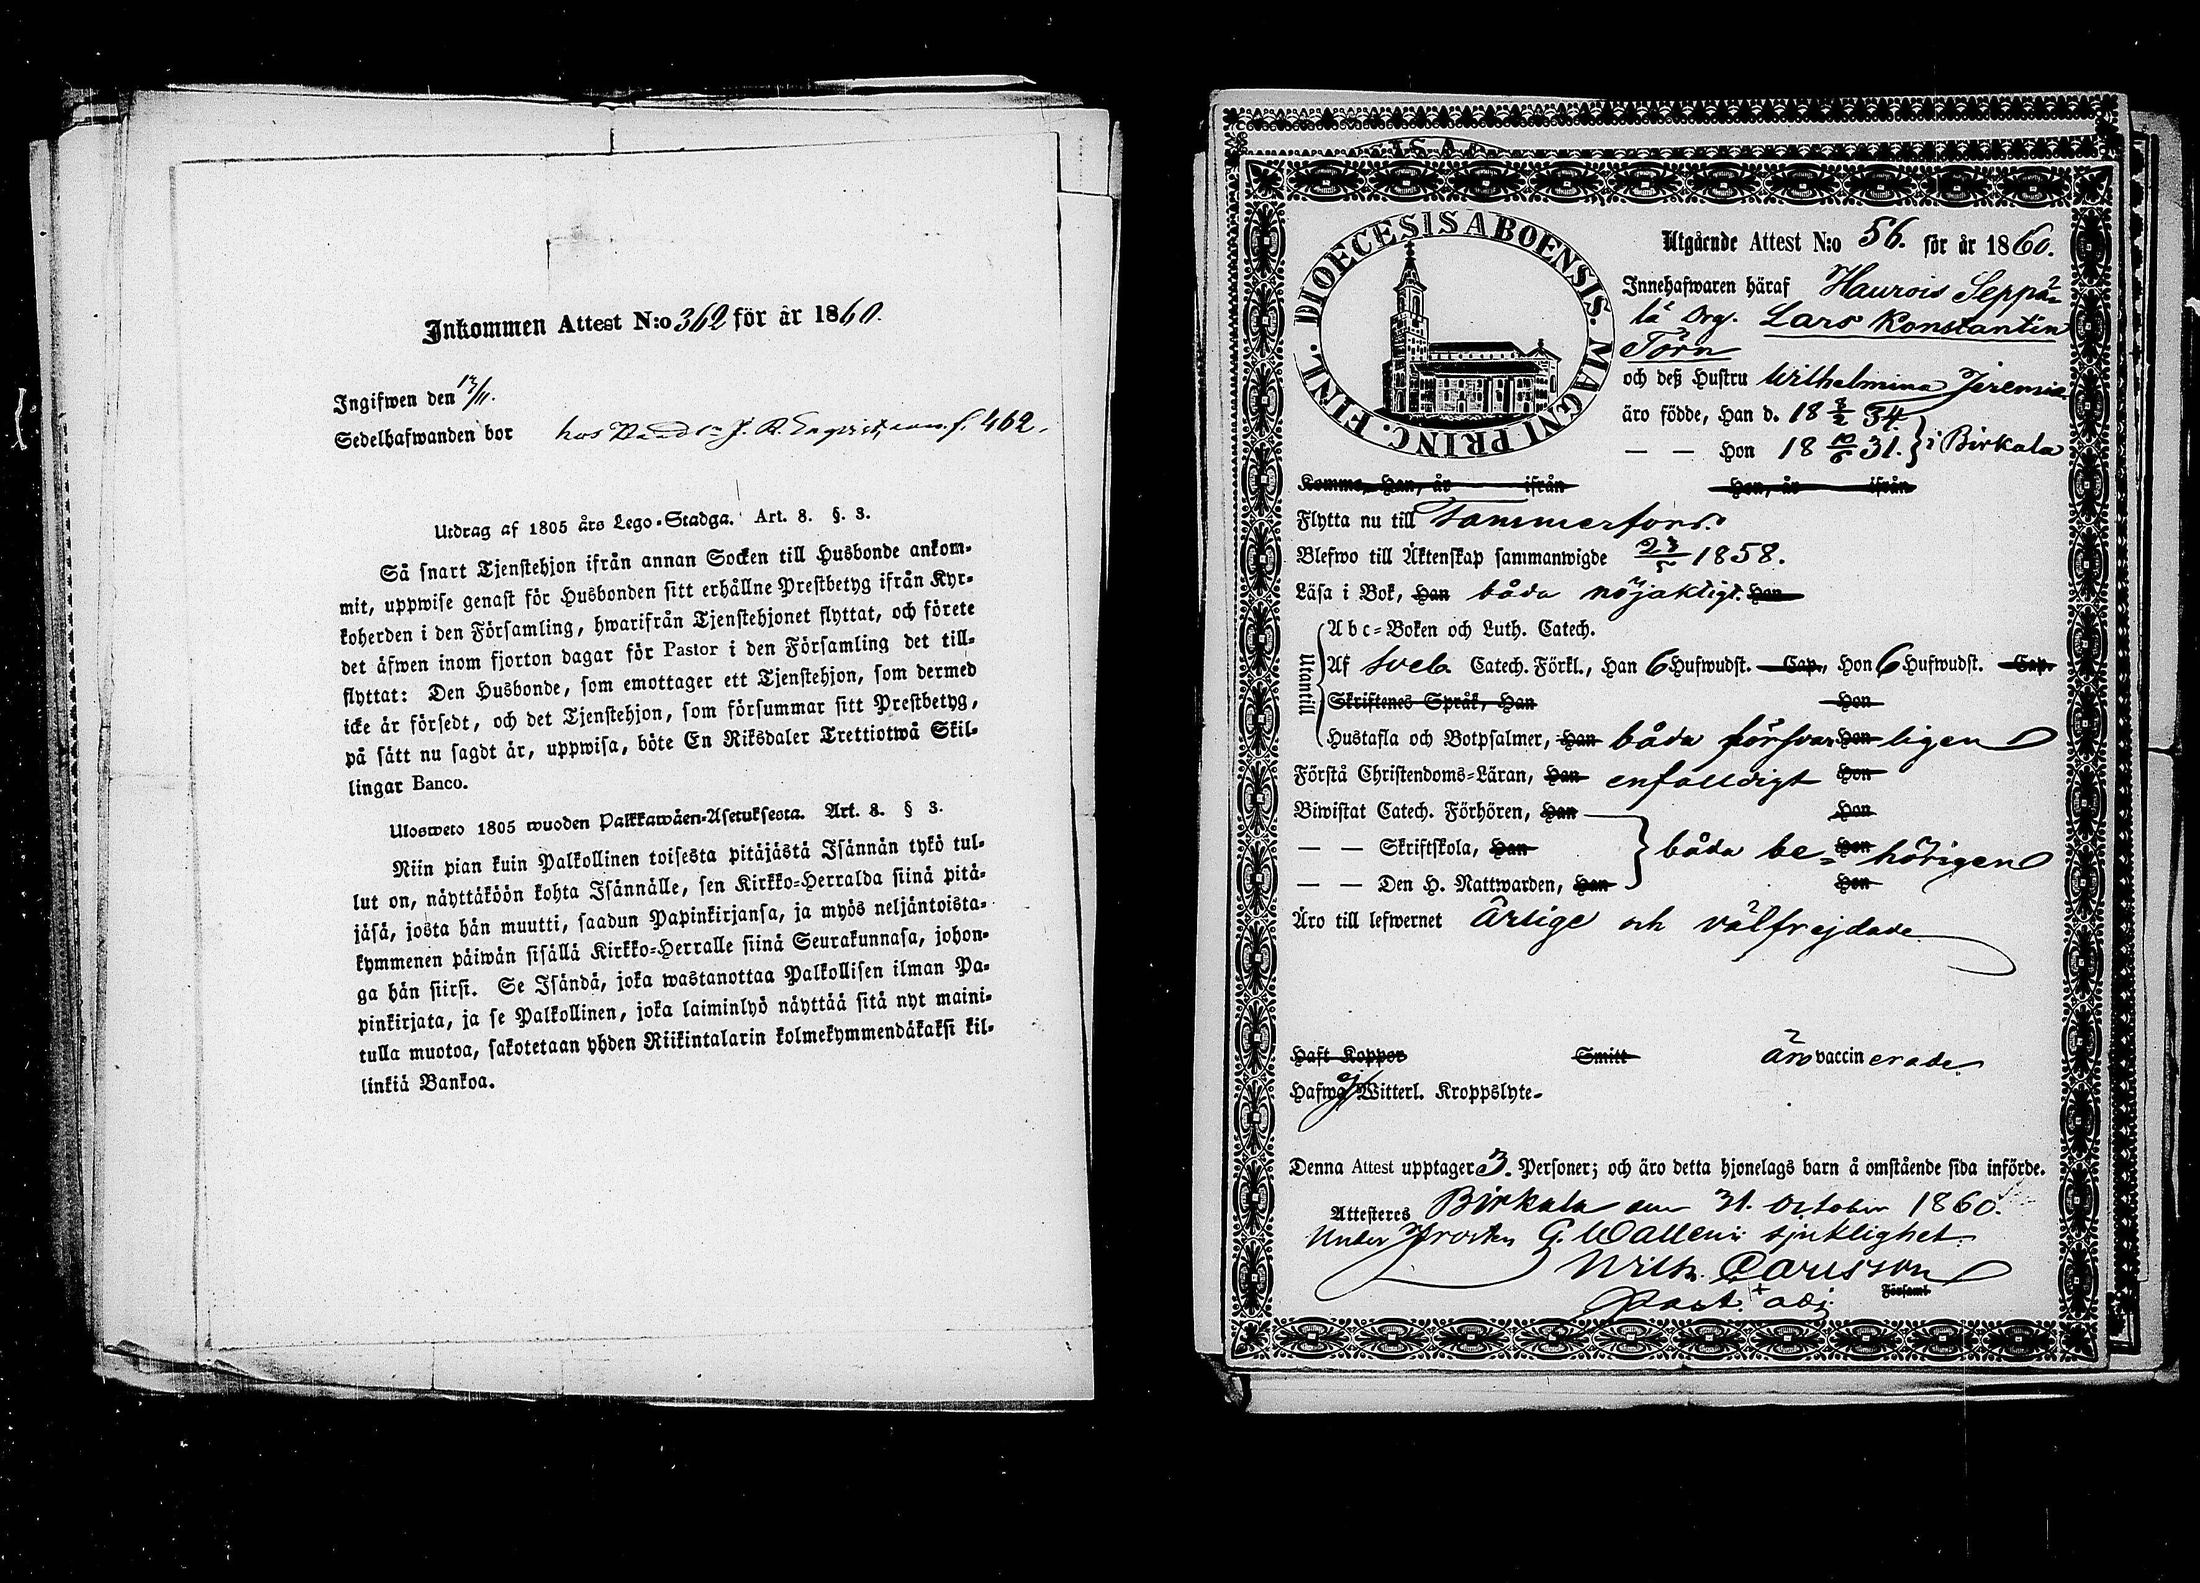 Inkommen Attest N:o 362 för år 1860.
Ingifwen den 13/11.
Sedelhafwanden bor hos f. 462.
Utdrag af 1805 års Lego-Stadga. Art. 8. §. 3.
Så snart Tjenstehjon ifrån annan Socken till Husbonde ankom-
mit, uppwise genast för Husbonden sitt erhållne Prestbetyg ifrån Kyr-
koherden i den Församling, hwarifrån Tjenstehjonet flyttat, och förete
det äfwen inom fjorton dagar för Pastor i den Församling det till-
flyttat: Den Husbonde, som emottager ett Tjenstehjon, som dermed
icke är försedt, och det Tjenstehjon, som försummar sitt Prestbetyg,
på sätt nu sagdt är, uppwisa, böte En Riksdaler Trettiotwå Skil-
lingar Banco.
Ulosweto 1805 wuoden Palkkawäen-Asetuksesta. Art. 8. § 3.
Niin pian kuin Palkollinen toisesta pitäjästä Isännän tykö tul-
lut on, näyttäköön kohta Isännälle, sen Kirkko-Herralda siinä pitä-
jäsä, josta hän muutti, saadun Papinkirjansa, ja myös neljäntoista-
kymmenen päiwän sisällä Kirkko-Herralle siinä Seurakunnasa, johon-
ga hän siirst. Se Isändä, joka wastanottaa Palkollisen ilman Pa-
pinkirjata, ja se Palkollinen, joka laiminlyö näyttää sitä nyt maini-
tulla muotoa, sakotetaan yhden Riikintalarin kolmekymmendäkaksi kil-
linkiä Bankoa.
DIOECESIS ABOENSIS. MAGNI PRINC. FINL.
Utgående Attest N:o 56. för år 1860.
Innehafwaren häraf Haurois Seppä-
lä Drg. Lars Konstantin
Törn
och deß Hustru Wilhelmina Jeremia
äro födde, Han d. 18 8/2 34.
— — Hon 18 10/6 31. } i Birkala
Komma, Han, år ifrån Hon, år ifrån
Flytta nu till Tammerfors.
Blefwo till Äktenskap sammanwigde 23/5 1858.
Läsa i Bok, Han båda nöjaktigt. Hon
Utantill
Abc-Boken och Luth. Catech.
Af Sveb. Catech. Förkl., Han 6 Hufwudst. Cap., Hon 6 Hufwudst. Cap.
Skriftenes Språk, Han Hon
Hustafla och Botpsalmer, Han båda försvar Hon ligen
Förstå Christendoms-Läran, Han enfalldigt Hon
Biwistat Catech. Förhören, Han Hon
— — Skriftskola, Han båda be- Hon hörigen
— — Den H. Nattwarden, Han Hon
Äro till lefwernet ärlige och välfrejdade
Haft Koppor Smitt äro vaccinerade
Hafwa ej Witterl. Kroppslyte-
Denna Attest upptager 3. Personer; och äro detta hjonelags barn å omstående sida införde.
Attesteres Birkala den 31. October 1860.
Under Prosten G. Wallenii sjuklighet.
Wilh. Carlsson
Past. adj. Församl